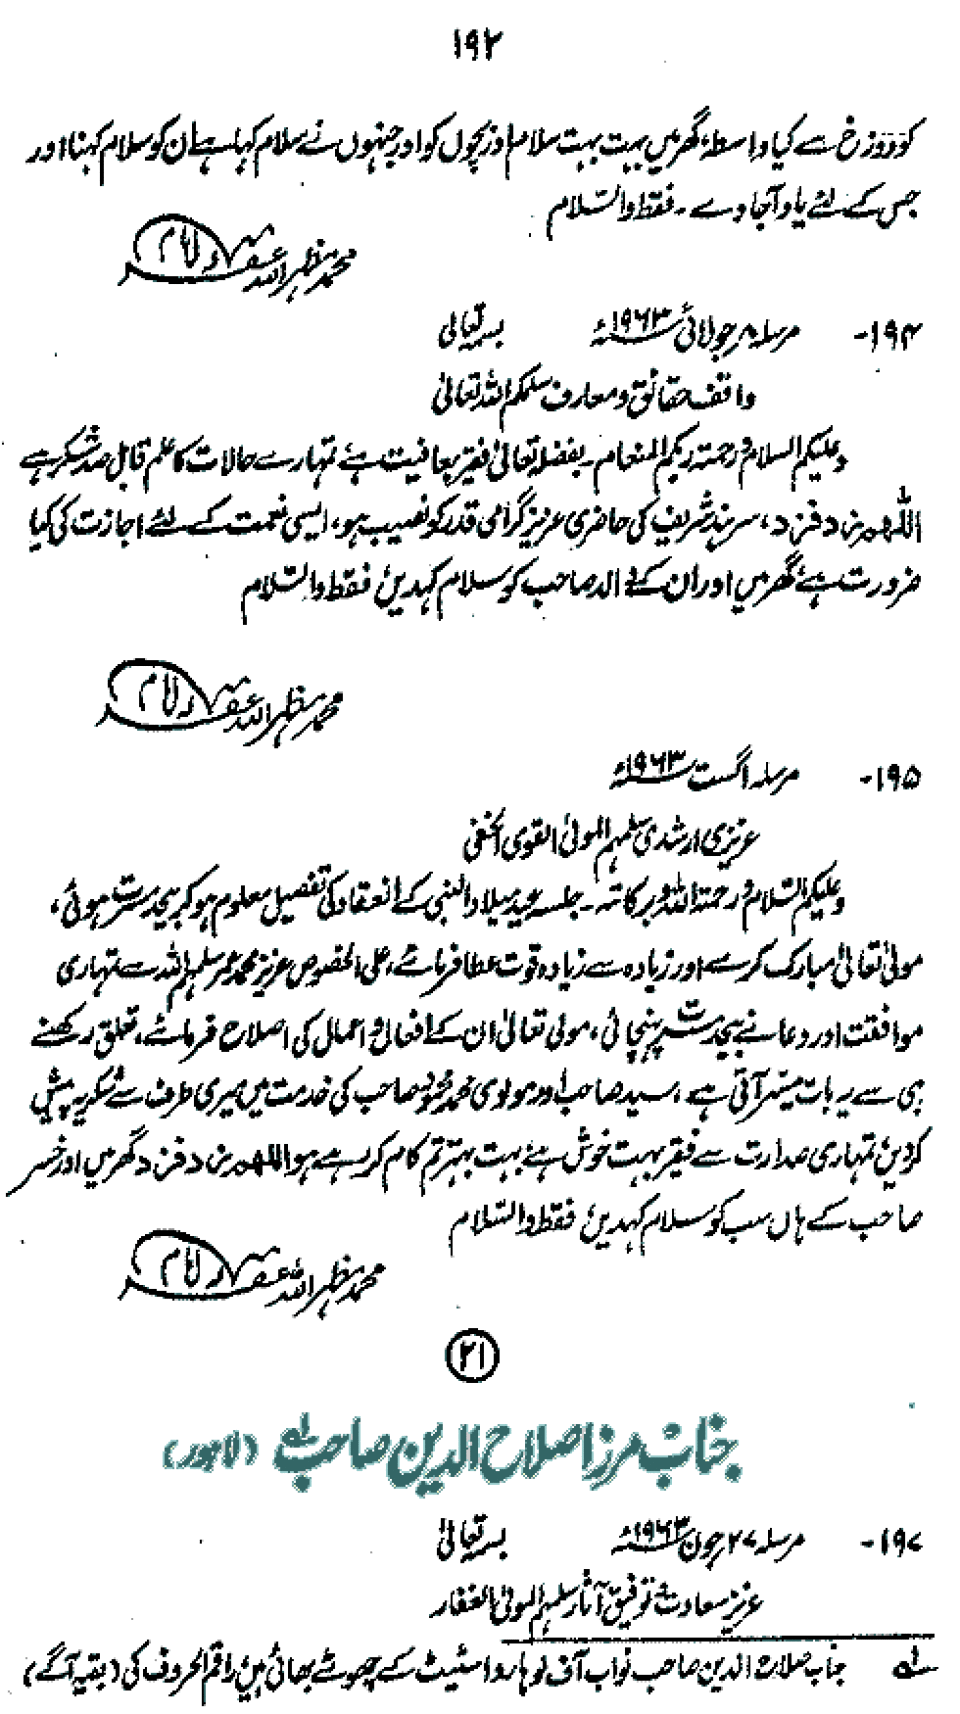 ۱۹۲
کو دوزخ سے کیا واسطہ، گھر میں بہت بہت سلام اور بچوں کو اور جنہوں نے سلام کہا ہے ان کو سلام کہنا اور
جس کے لئے یاد آجاوے۔ فقط والسلام
محمد مظہر اللہ غفرلہ امام
۱۹۴- مرسلہ ۸ جولائی ۱۹۶۳ء بسمہ تعالیٰ
واقف حقائق و معارف سلمکم اللہ تعالیٰ
وعلیکم السلام و رحمۃ ربکم المنعام۔ بفضلہ تعالیٰ فقیر بعافیت ہے، تمہارے حالات کا علم قابل صد شکر ہے
اللھم زد فزد، سرہند شریف کی حاضری عزیز گرامی قدر کو نصیب ہو، ایسی نعمت کے لئے اجازت کی کیا
ضرورت ہے، گھر میں اور ان کے والد صاحب کو سلام کہدیں، فقط والسلام
محمد مظہر اللہ غفرلہ امام
۱۹۵- مرسلہ اگست ۱۹۶۳ء
عزیزی ارشدی سلمہم المولیٰ القوی الخفی
وعلیکم السلام و رحمۃ اللہ و برکاتہ۔ جلسہ عید میلاد النبی کے انعقاد کی تفصیل معلوم ہو کر بیحد مسرت ہوئی،
مولیٰ تعالیٰ مبارک کرے اور زیادہ سے زیادہ قوت عطا فرمائے، علی الخصوص عزیز محمد عمر سلمہم اللہ سے تمہاری
موافقت اور دعا نے بیحد مسرت پہنچائی، مولیٰ تعالیٰ ان کے افعال و اعمال کی اصلاح فرمائے، تعلق رکھنے
ہی سے یہ بات میسر آتی ہے، سید صاحب اور مولوی محمد محمود صاحب کی خدمت میں میری طرف سے شکریہ پیش
کردیں، تمہاری صدارت سے فقیر بہت خوش ہے، بہت بہتر تم کام کر رہے ہو اللھم زد فزد گھر میں اور خسر
صاحب کے ہاں سب کو سلام کہدیں، فقط والسلام
محمد مظہر اللہ غفرلہ امام
۲۱
جناب مرزا صلاح الدین صاحب لہ (لاہور)
۱۹۷- مرسلہ ۲۷ جون ۱۹۶۳ء بسمہ تعالیٰ
عزیز سعادت توفیق آثار سلمہم المولیٰ الغفار
لہ جناب صلاح الدین صاحب نواب آف لوہارو اسٹیٹ کے چھوٹے بھائی ہیں، راقم الحروف کی (بقیہ آگے)